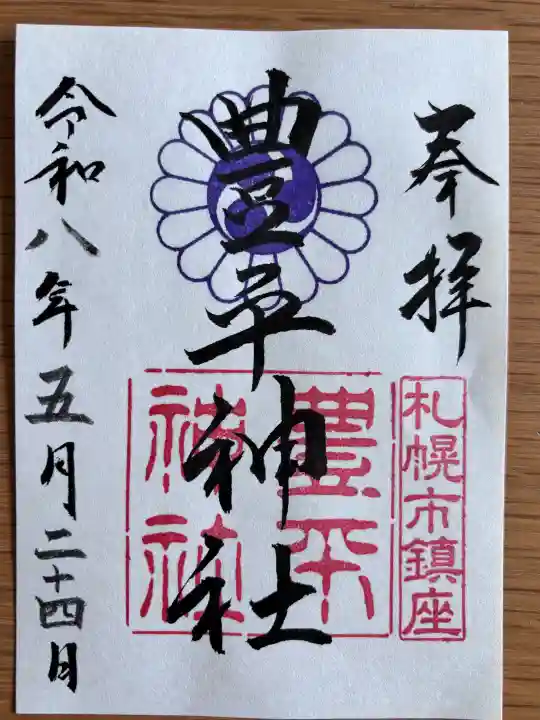 奉拝
札幌市鎮座
豊平神社
豊平神社
令和八年五月二十四日